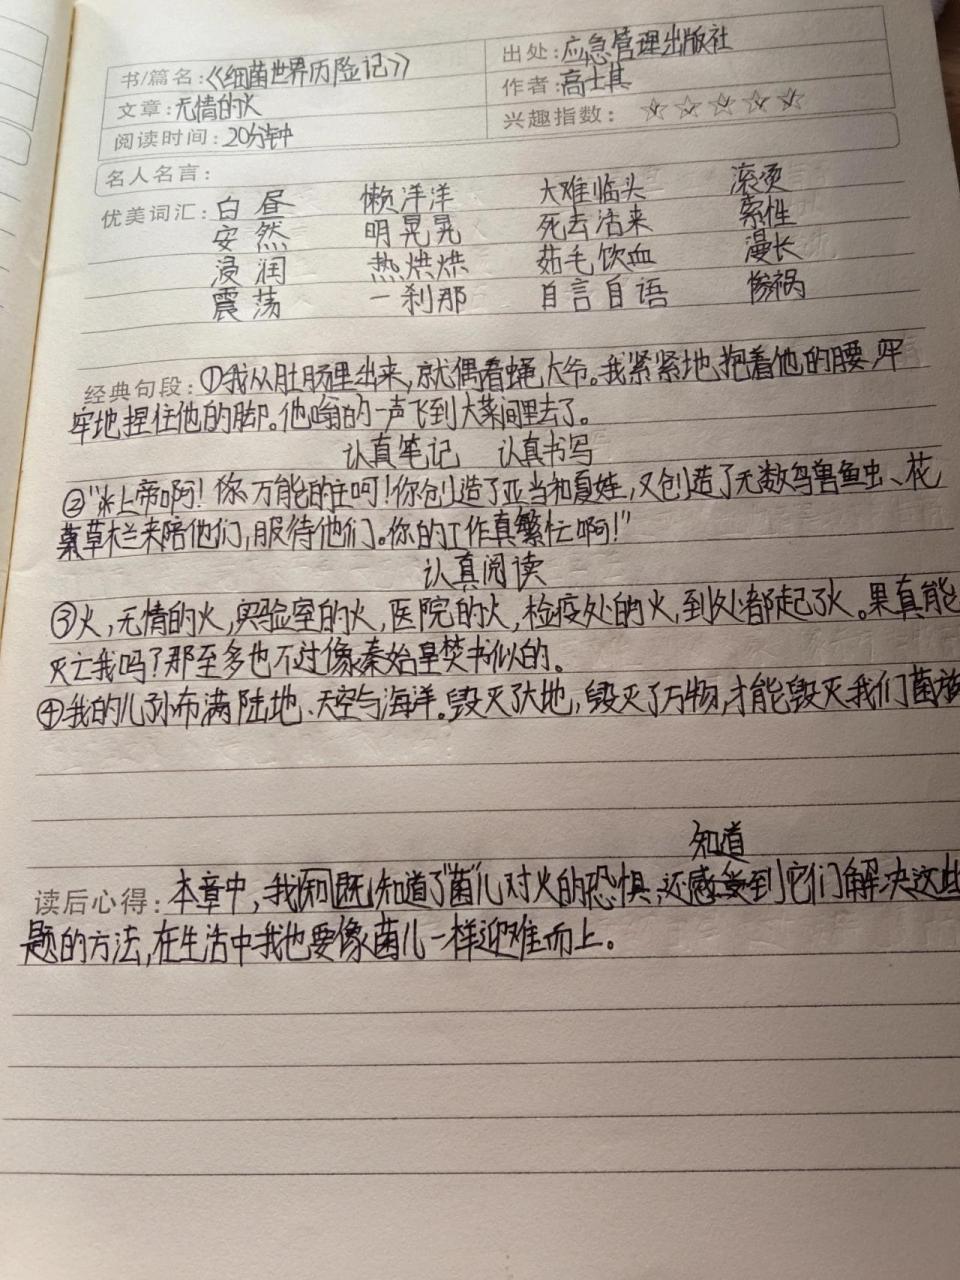 书/篇名:《细菌世界历险记》 出处:应急管理出版社
文章:无情的火 作者:高士其
阅读时间:20分钟 兴趣指数:☆☆☆☆☆
名人名言:
优美词汇:白昼 懒洋洋 大难临头 滚烫
安然 明晃晃 死去活来 索性
浸润 热烘烘 茹毛饮血 漫长
震荡 一刹那 自言自语 惨祸
经典句段:①我从肚肠里出来,就偶着蝇大爷。我紧紧地抱着他的腰,牢
牢地捏住他的脚。他嗡的一声飞到大菜间里去了。
认真笔记 认真书写
②"上帝啊!你万能的主呵!你创造了亚当和夏娃,又创造了无数鸟兽鱼虫、花
草木来陪他们,服待他们。你的工作真繁忙啊!"
认真阅读
③火,无情的火,实验室的火,医院的火,检疫处的火,到处都起了火。果真能
灭亡我吗?那至多也不过像秦始皇焚书似的。
④我的儿孙布满陆地、天空与海洋。毁灭了大地,毁灭了万物,才能毁灭我们菌族
知道
读后心得:本章中,我既知道了"菌"儿对火的恐惧,还感到它们解决这些
题的方法,在生活中我也要像菌儿一样迎难而上。